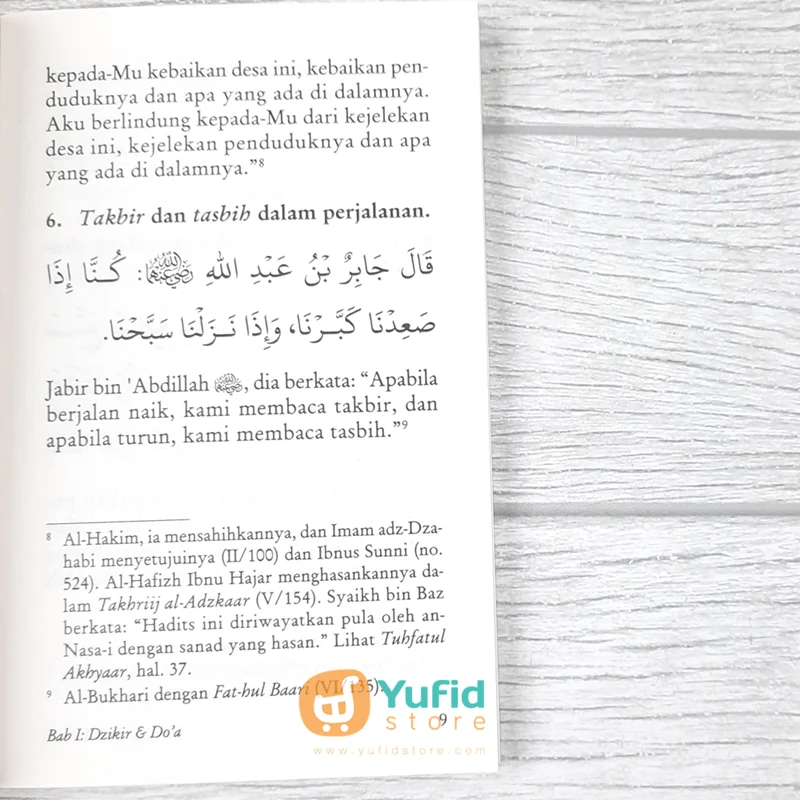 kepada-Mu kebaikan desa ini, kebaikan pen-
duduknya dan apa yang ada di dalamnya.
Aku berlindung kepada-Mu dari kejelekan
desa ini, kejelekan penduduknya dan apa
yang ada di dalamnya.”⁸
6. Takbir dan tasbih dalam perjalanan.
قَالَ جَابِرُ بْنُ عَبْدِ اللهِ رَضِيَ اللهُ عَنْهُمَا: كُنَّا إِذَا
صَعِدْنَا كَبَّرْنَا، وَإِذَا نَزَلْنَا سَبَّحْنَا.
Jabir bin 'Abdillah, dia berkata: “Apabila
berjalan naik, kami membaca takbir, dan
apabila turun, kami membaca tasbih.”⁹
⁸ Al-Hakim, ia mensahihkannya, dan Imam adz-Dza-
habi menyetujuinya (II/100) dan Ibnus Sunni (no.
524). Al-Hafizh Ibnu Hajar menghasankannya da-
lam Takhriij al-Adzkaar (V/154). Syaikh bin Baz
berkata: “Hadits ini diriwayatkan pula oleh an-
Nasa-i dengan sanad yang hasan.” Lihat Tuhfatul
Akhyaar, hal. 37.
⁹ Al-Bukhari dengan Fat-hul Baari (VI/135).
Bab I: Dzikir & Do’a
9
Yufid
store
www.yufidstore.com